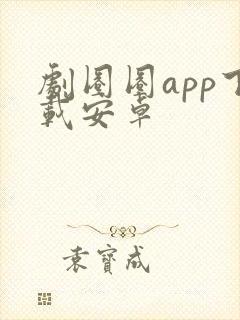 劇圈圈app下
載安卓
袁寶成